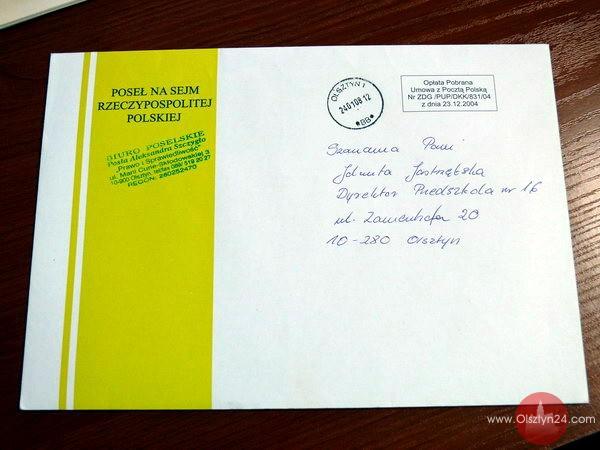 POSEŁ NA SEJM
RZECZYPOSPOLITEJ
POLSKIEJ
BIURO POSELSKIE
Posła Aleksandra Szczygło
"Prawo i Sprawiedliwość"
ul. Marii Curie-Skłodowskiej 3
10-900 Olsztyn, tel/fax 089/ 519 20 27
REGON: 280252470
OLSZTYN 1
240108.12
*BB*
Opłata Pobrana
Umowa z Pocztą Polską
Nr ZDG /PUP/DKK/831/04
z dnia 23.12.2004
Szanowna Pani
Jolanta Jastrzębska
Dyrektor Przedszkola nr 16
ul. Zamenhofa 20
10-280 Olsztyn
www.Olsztyn24.com